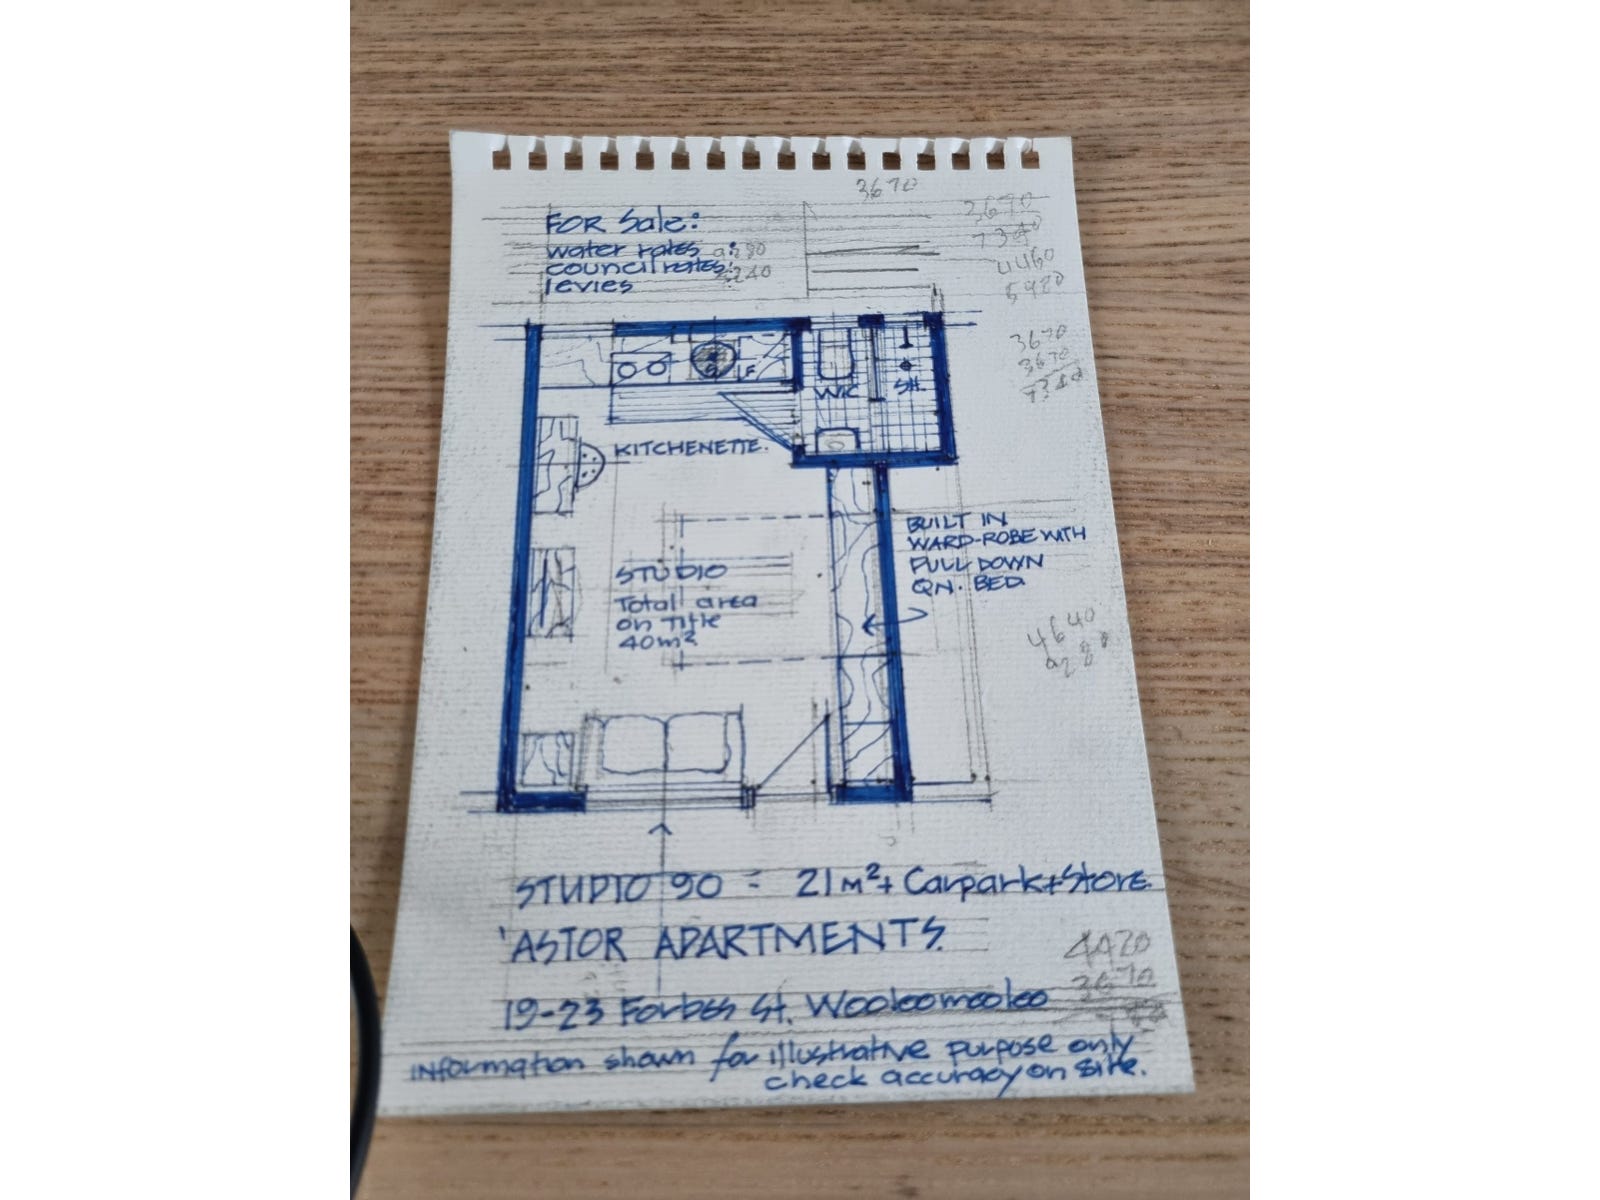 3670
FOR Sale:
3670
7340
water rates :
council rates:
levies :
4460
5920
3670
3670
7340
W/C
SH.
F
KITCHENETTE.
BUILT IN
WARD-ROBE WITH
PULL DOWN
QN. BED.
STUDIO
Total area
on Title
40m²
4640
STUDIO 90 = 21M²+ Carpark+Store.
'ASTOR APARTMENTS.
4420
3670
19-23 Forbes St. Wooloomooloo
information shown for illustrative purpose only
check accuracy on site.